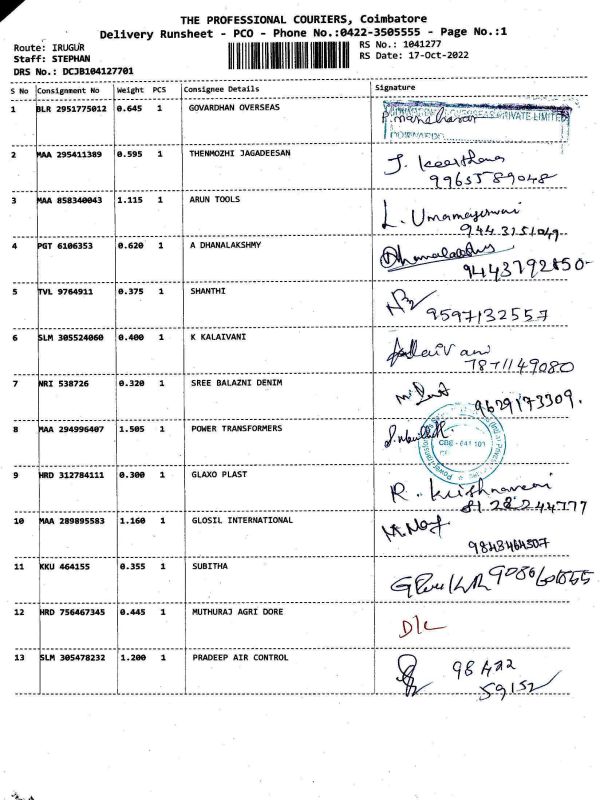 THE PROFESSIONAL COURIERS, Coimbatore
Delivery Runsheet - PCO - Phone No.:0422-3505555 - Page No.:1
Route: IRUGUR
Staff: STEPHAN
DRS No.: DCJB104127701
RS No.: 1041277
RS Date: 17-Oct-2022
S No Consignment No Weight PCS Consignee Details Signature
1 BLR 2951775012 0.645 1 GOVARDHAN OVERSEAS
OVERSEAS PRIVATE LIMITED
2 MAA 295411389 0.595 1 THENMOZHI JAGADEESAN J. Keerthana
9965589048
3 MAA 858340043 1.115 1 ARUN TOOLS L. Umamageswari
9443151049
4 PGT 6106353 0.620 1 A DHANALAKSHMY Dhanalakshmy
9443792850
5 TVL 9764911 0.375 1 SHANTHI
9597132557
6 SLM 305524060 0.400 1 K KALAIVANI
7871149080
7 NRI 538726 0.320 1 SREE BALAZNI DENIM
9629173309.
8 MAA 294996407 1.505 1 POWER TRANSFORMERS
CBE - 641 103
9 HRD 312784111 0.300 1 GLAXO PLAST R. Krishnaveni
10 MAA 289895583 1.160 1 GLOSIL INTERNATIONAL
9843464307
11 KKU 464155 0.355 1 SUBITHA
12 HRD 756467345 0.445 1 MUTHURAJ AGRI DORE D/L
13 SLM 305478232 1.200 1 PRADEEP AIR CONTROL 98422
59152